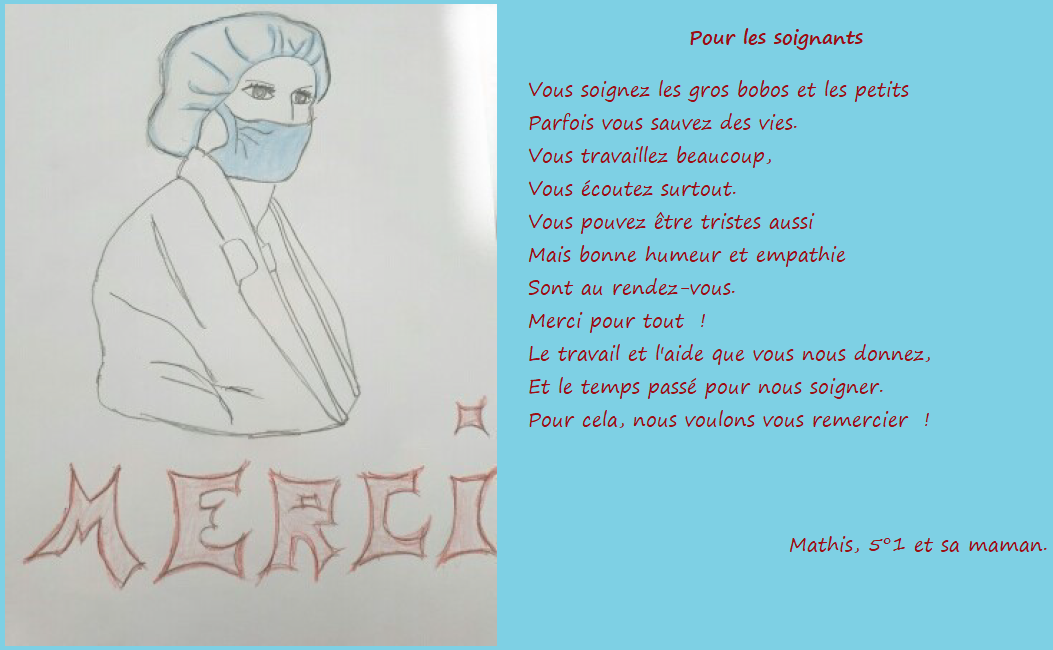 Pour les soignants
Vous soignez les gros bobos et les petits
Parfois vous sauvez des vies.
Vous travaillez beaucoup,
Vous écoutez surtout.
Vous pouvez être tristes aussi
Mais bonne humeur et empathie
Sont au rendez-vous.
Merci pour tout !
Le travail et l'aide que vous nous donnez,
Et le temps passé pour nous soigner.
Pour cela, nous voulons vous remercier !
Mathis, 5°1 et sa maman.
MERCi